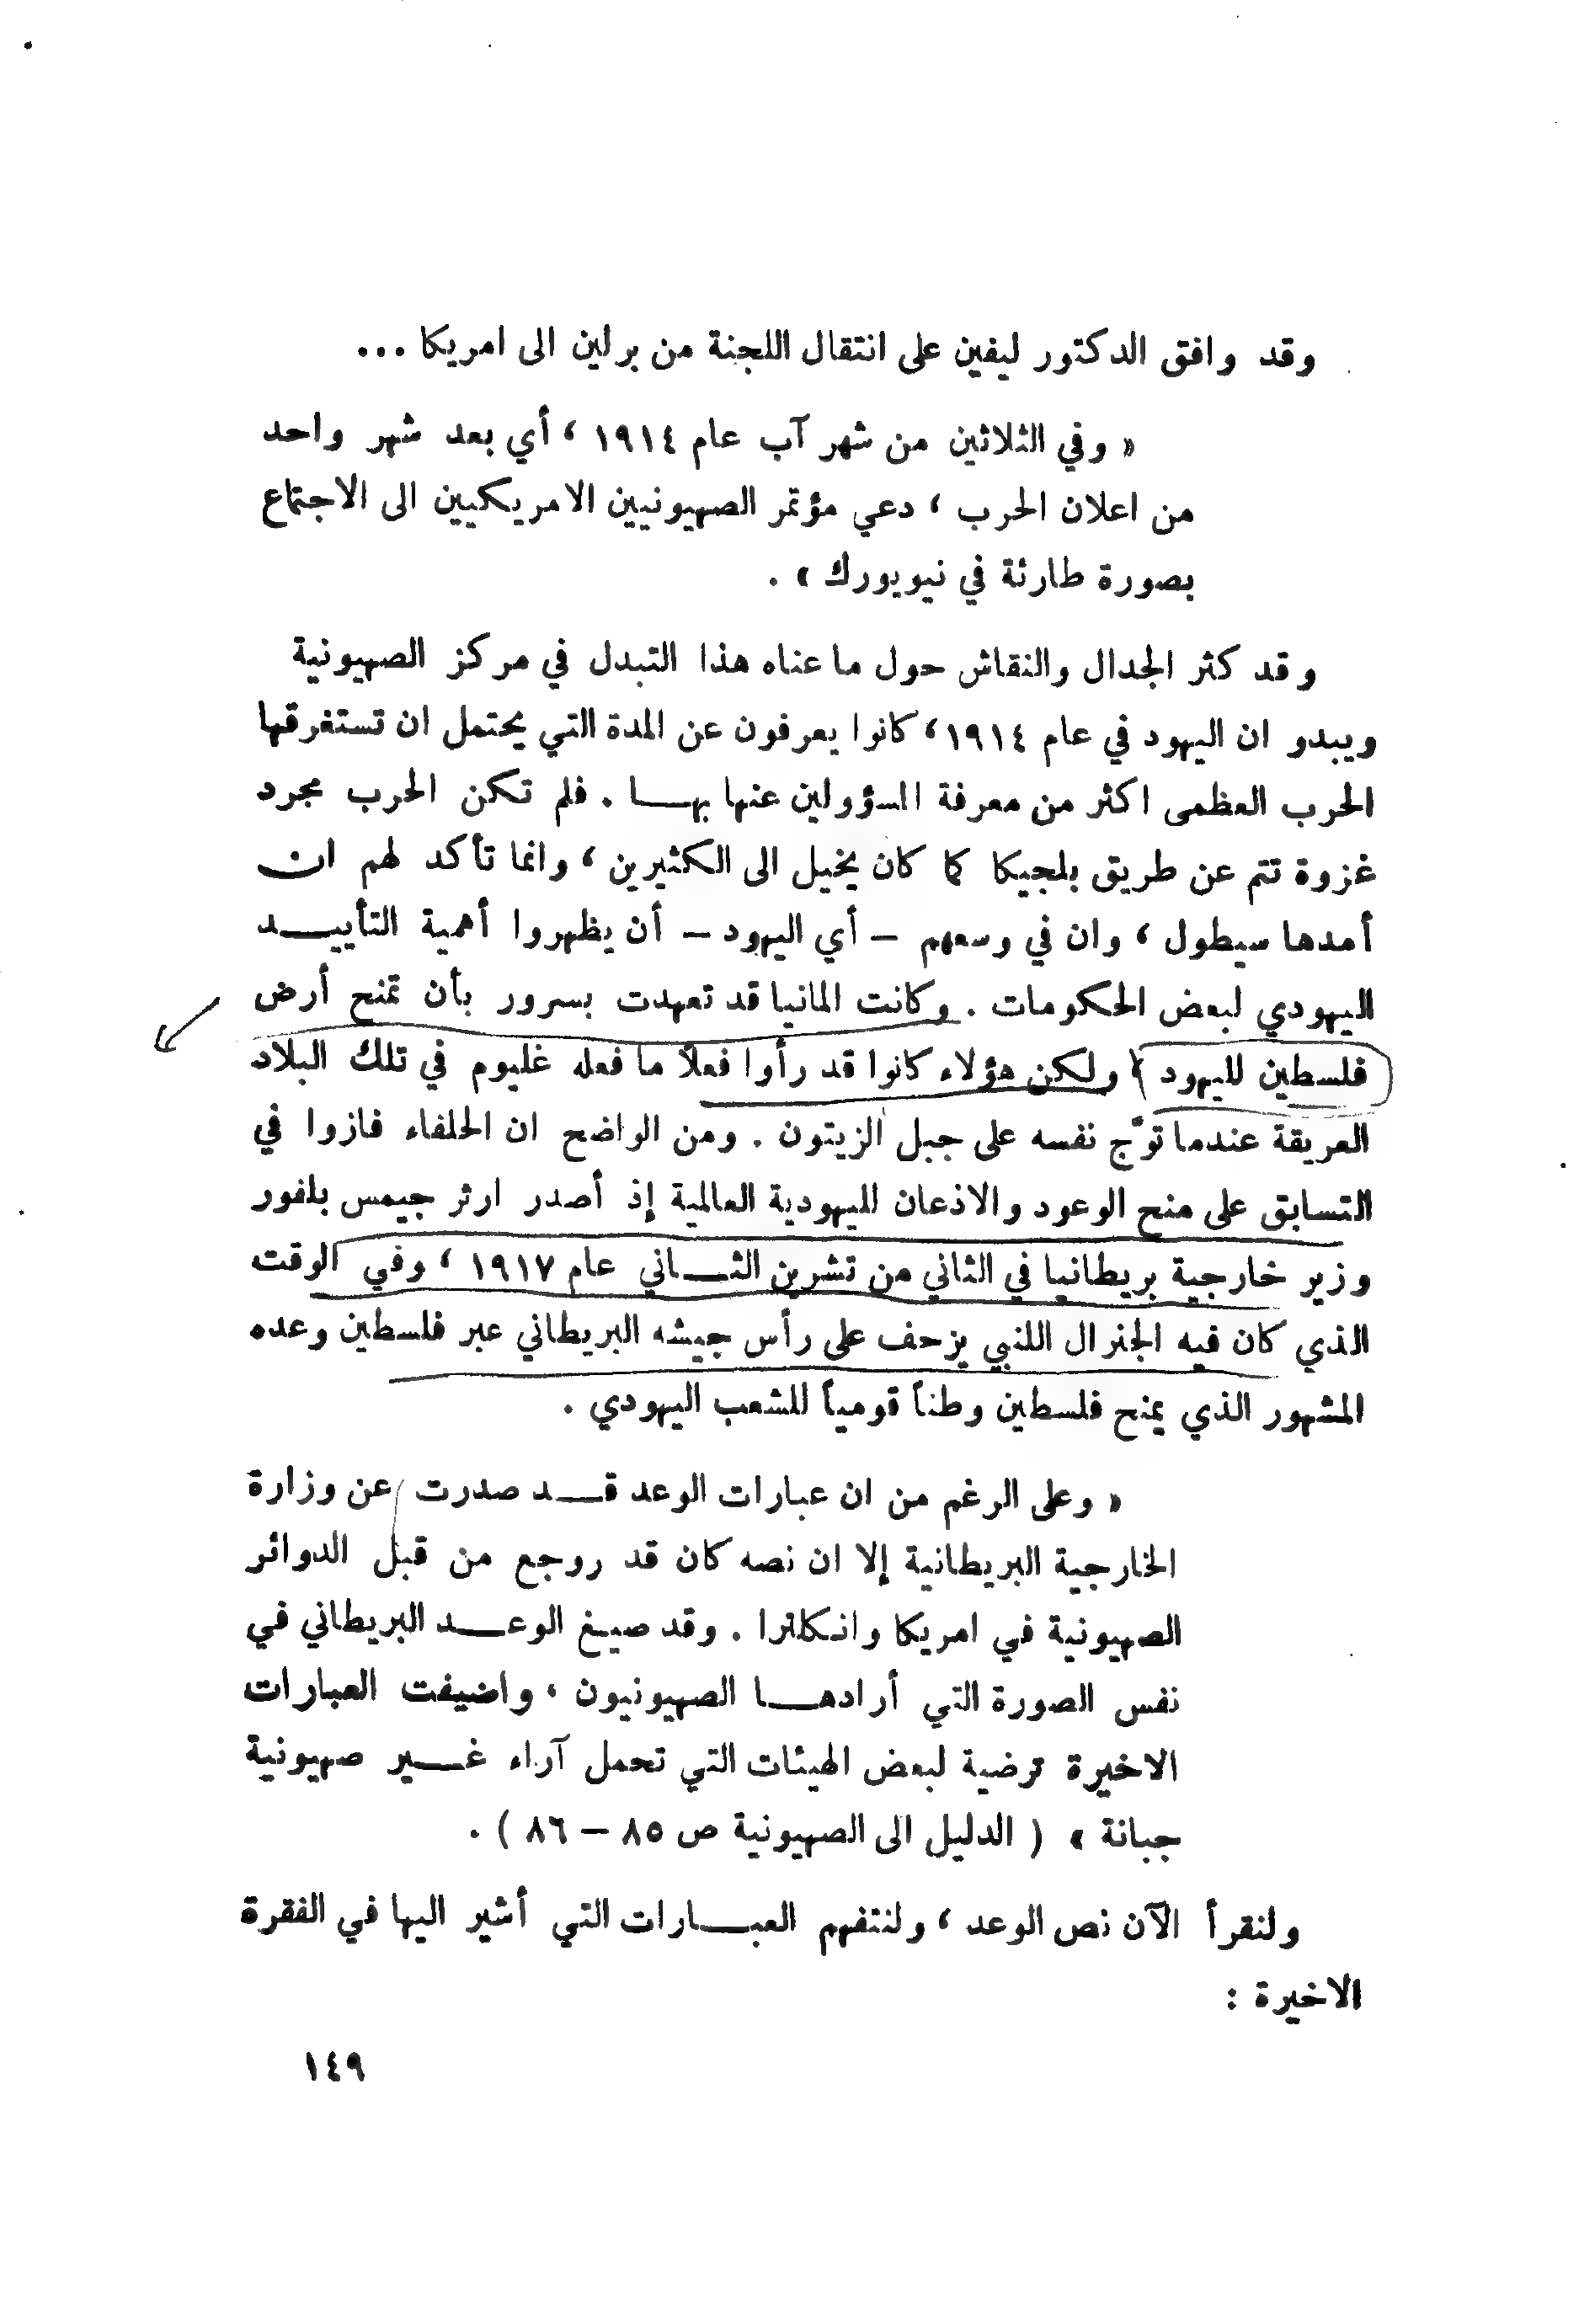 وقد وافق الدكتور ليفين على انتقال اللجنة من برلين الى امريكا ...
« وفي الثلاثين من شهر آب عام ١٩١٤ ، أي بعد شهر واحد
من اعلان الحرب ، دعي مؤتمر الصهيونيين الامريكيين الى الاجتماع
بصورة طارئة في نيويورك » .
وقد كثر الجدال والنقاش حول ما عناه هذا التبدل في مركز الصهيونية
ويبدو ان اليهود في عام ١٩١٤ ، كانوا يعرفون عن المدة التي يحتمل ان تستغرقها
الحرب العظمى اكثر من معرفة المسؤولين عنها بهـا . فلم تكن الحرب مجرد
غزوة تتم عن طريق بلجيكا كما كان يخيل الى الكثيرين ، وانما تأكد لهم ان
أمدها سيطول ، وان في وسعهم – أي اليهود – أن يظهروا أهمية التأييـد
اليهودي لبعض الحكومات . وكانت المانيا قد تعهدت بسرور بأن تمنح أرض
فلسطين لليهود ، ولكن هؤلاء كانوا قد رأوا فعلاً ما فعله غليوم في تلك البلاد
العريقة عندما توّج نفسه على جبل الزيتون . ومن الواضح ان الحلفاء فازوا في
التسابق على منح الوعود والاذعان لليهودية العالمية إذ أصدر ارثر جيمس بلفور
وزير خارجية بريطانيا في الثاني من تشرين الثـاني عام ١٩١٧ ، وفي الوقت
الذي كان فيه الجنرال اللنبي يزحف على رأس جيشه البريطاني عبر فلسطين وعده
المشهور الذي يمنح فلسطين وطناً قومياً للشعب اليهودي .
« وعلى الرغم من ان عبارات الوعد قـد صدرت عن وزارة
الخارجية البريطانية إلا ان نصه كان قد روجع من قبل الدوائر
الصهيونية في امريكا وانكلترا . وقد صيغ الوعـد البريطاني في
نفس الصورة التي أرادهـا الصهيونيون ، واضيفت العبارات
الاخيرة ترضية لبعض الهيئات التي تحمل آراء غـير صهيونية
جبانة » ( الدليل الى الصهيونية ص ٨٥ – ٨٦ ) .
ولنقرأ الآن نص الوعد ، ولنتفهم العبـارات التي أشير اليها في الفقرة
الاخيرة :
١٤٩